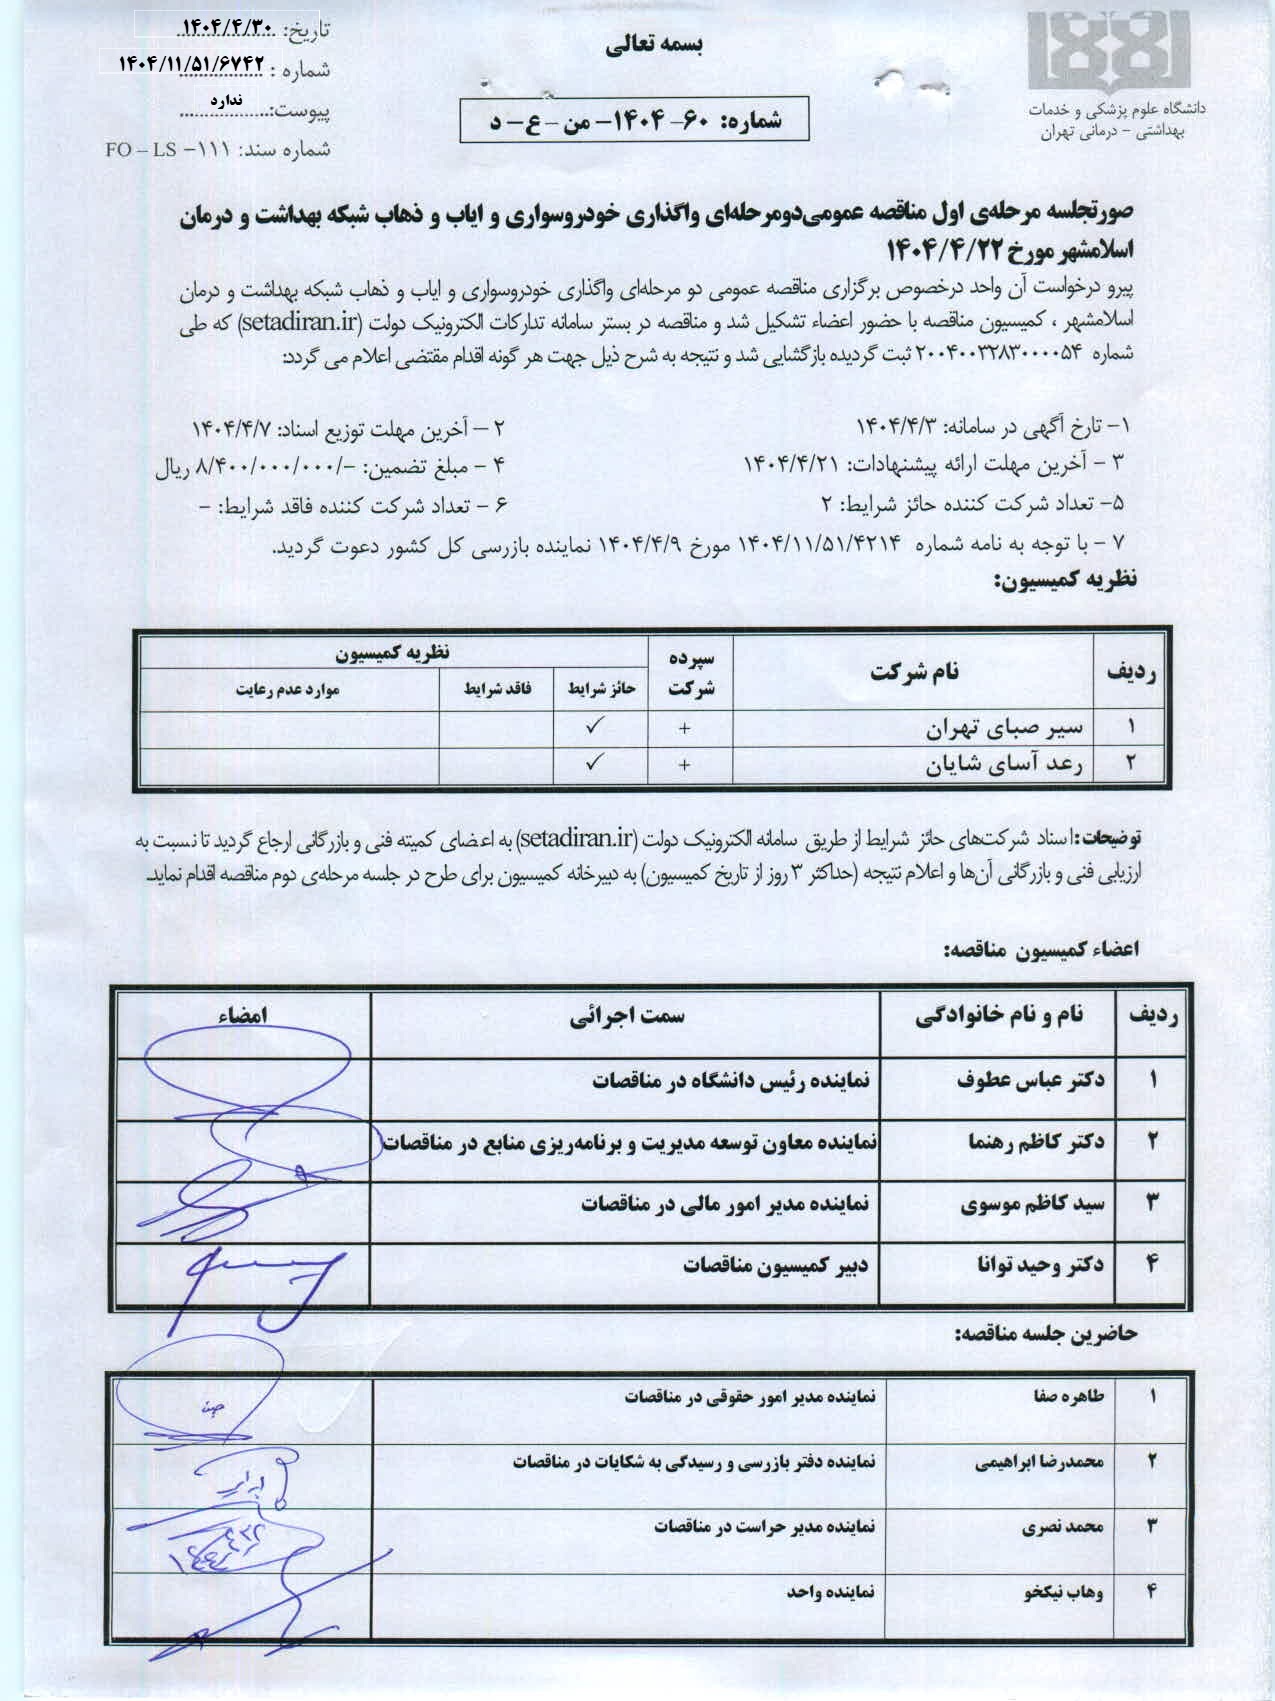 بسمه تعالی
تاریخ: ۱۴۰۴/۴/۳۰
شماره : ۱۴۰۴/۱۱/۵۱/۶۷۴۲
پیوست: ندارد
شماره سند: FO – LS –۱۱۱
دانشگاه علوم پزشکی و خدمات
بهداشتی – درمانی تهران
شماره: ۶۰– ۱۴۰۴– من – ع– د
صورتجلسه مرحله‌ی اول مناقصه عمومی‌دومرحله‌ای واگذاری خودروسواری و ایاب و ذهاب شبکه بهداشت و درمان
اسلامشهر مورخ ۱۴۰۴/۴/۲۲
پیرو درخواست آن واحد درخصوص برگزاری مناقصه عمومی دو مرحله‌ای واگذاری خودروسواری و ایاب و ذهاب شبکه بهداشت و درمان
اسلامشهر ، کمیسیون مناقصه با حضور اعضاء تشکیل شد و مناقصه در بستر سامانه تدارکات الکترونیک دولت (setadiran.ir) که طی
شماره ۲۰۰۴۰۰۳۲۸۳۰۰۰۰۵۴ ثبت گردیده بازگشایی شد و نتیجه به شرح ذیل جهت هر گونه اقدام مقتضی اعلام می گردد:
۱– تارخ آگهی در سامانه: ۱۴۰۴/۴/۳
۲ – آخرین مهلت توزیع اسناد: ۱۴۰۴/۴/۷
۳ – آخرین مهلت ارائه پیشنهادات: ۱۴۰۴/۴/۲۱
۴ – مبلغ تضمین: –/۸/۴۰۰/۰۰۰/۰۰۰ ریال
۵– تعداد شرکت کننده حائز شرایط: ۲
۶ – تعداد شرکت کننده فاقد شرایط: –
۷ – با توجه به نامه شماره ۱۴۰۴/۱۱/۵۱/۴۲۱۴ مورخ ۱۴۰۴/۴/۹ نماینده بازرسی کل کشور دعوت گردید.
نظریه کمیسیون:
ردیف نام شرکت سپرده شرکت نظریه کمیسیون
حائز شرایط فاقد شرایط موارد عدم رعایت
۱ سیر صبای تهران + ✓
۲ رعد آسای شایان + ✓
توضیحات: اسناد شرکت‌های حائز شرایط از طریق سامانه الکترونیک دولت (setadiran.ir) به اعضای کمیته فنی و بازرگانی ارجاع گردید تا نسبت به
ارزیابی فنی و بازرگانی آن‌ها و اعلام نتیجه (حداکثر ۳ روز از تاریخ کمیسیون) به دبیرخانه کمیسیون برای طرح در جلسه مرحله‌ی دوم مناقصه اقدام نماید.
اعضاء کمیسیون مناقصه:
ردیف نام و نام خانوادگی سمت اجرائی امضاء
۱ دکتر عباس عطوف نماینده رئیس دانشگاه در مناقصات
۲ دکتر کاظم رهنما نماینده معاون توسعه مدیریت و برنامه‌ریزی منابع در مناقصات
۳ سید کاظم موسوی نماینده مدیر امور مالی در مناقصات
۴ دکتر وحید توانا دبیر کمیسیون مناقصات
حاضرین جلسه مناقصه:
۱ طاهره صفا نماینده مدیر امور حقوقی در مناقصات
۲ محمدرضا ابراهیمی نماینده دفتر بازرسی و رسیدگی به شکایات در مناقصات
۳ محمد نصری نماینده مدیر حراست در مناقصات
۴ وهاب نیکخو نماینده واحد